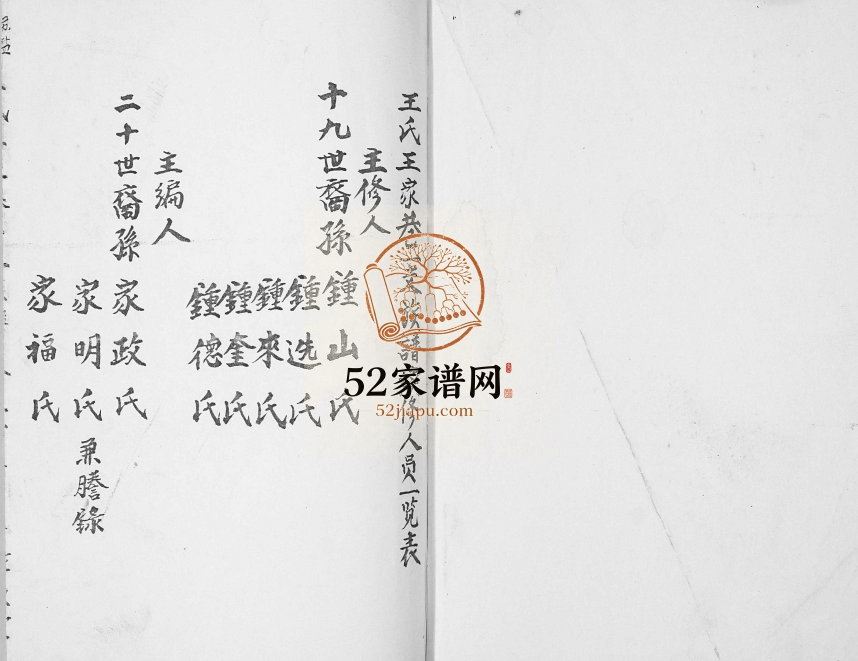 王氏王家巷 族譜 修人員一覧表
主修人
十九世裔孫 鍾山氏
鍾选氏
鍾來氏
鍾奎氏
鍾德氏
主編人
二十世裔孫 家政氏
家明氏 兼謄錄
家福氏
52家谱网
52jiapu.com